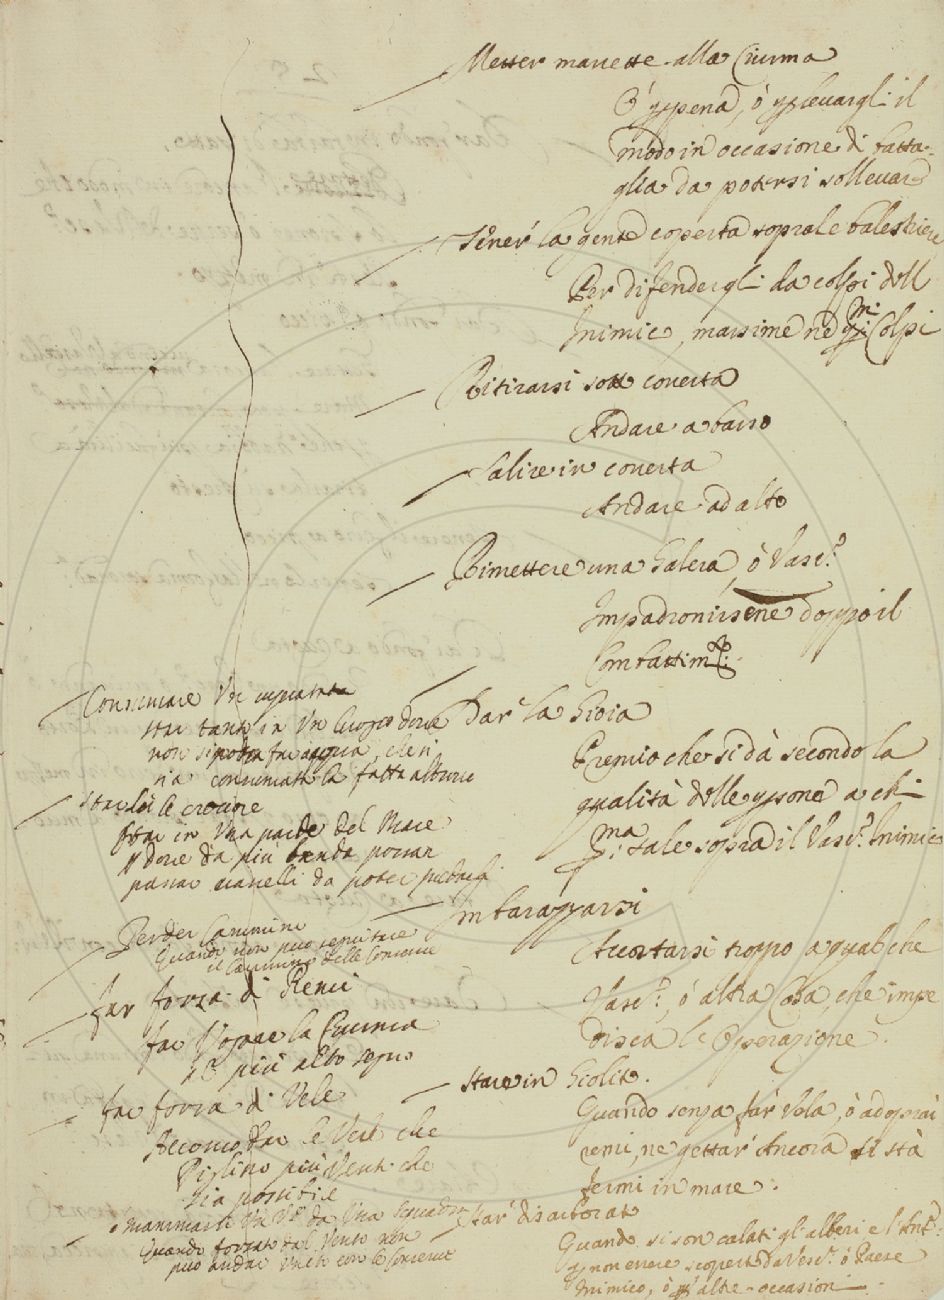 Metter manette alla Ciurma
O' p pena, ó p levargli il
modo in occasione di batta-
glia da potersi sollevare
Tener la gente coperta sopra le balestriere
Per difendergli da colpi dell
Inimico, massime ne pmi Colpi
Ritirarsi sotto coverta
Andare a basso
Salire in coverta
Andare ad alto
Rimettere una Galera, ó Vasc.º
Impadronirsene doppo il
Combattim.to
Dar la Gioia
Premio che si dà secondo la
qualità delle psone a chi
pma sale sopra il Vasc.º Inimico
Imbarazzarsi
Accostarsi troppo a qualche
Vasc.º, ó altra Cosa, che impe
disca le Operazione.
Stare in Giolito.
Quando senza far Vela, ó adoprar
remi, ne gettar Ancora si stà
fermi in mare.
Star disarborato
Quando si son calati gli alberi e l'Ant.e
p non essere scoperto da Vasc.º ó Paese
Inimico, ó p altre occasioni
Consumare
star tanto in Un luogo dove
non si possa far acqua, che
sia consumata la fatta
Star le crociere
Star in Una parte del Mare
dove da più banda possan
passar vascelli da poter
Perder Cammino
Quando non può
il Cammino delle Conserve
Far forza di Remi
far Vogare la Ciurma
più alto segno
Far forza di Vele
Accomodar le Vele che
Piglino più Vento che
sia possibile
da Una Squadra
Quando forzato dal Vento non
può andar Unito con le Conserve